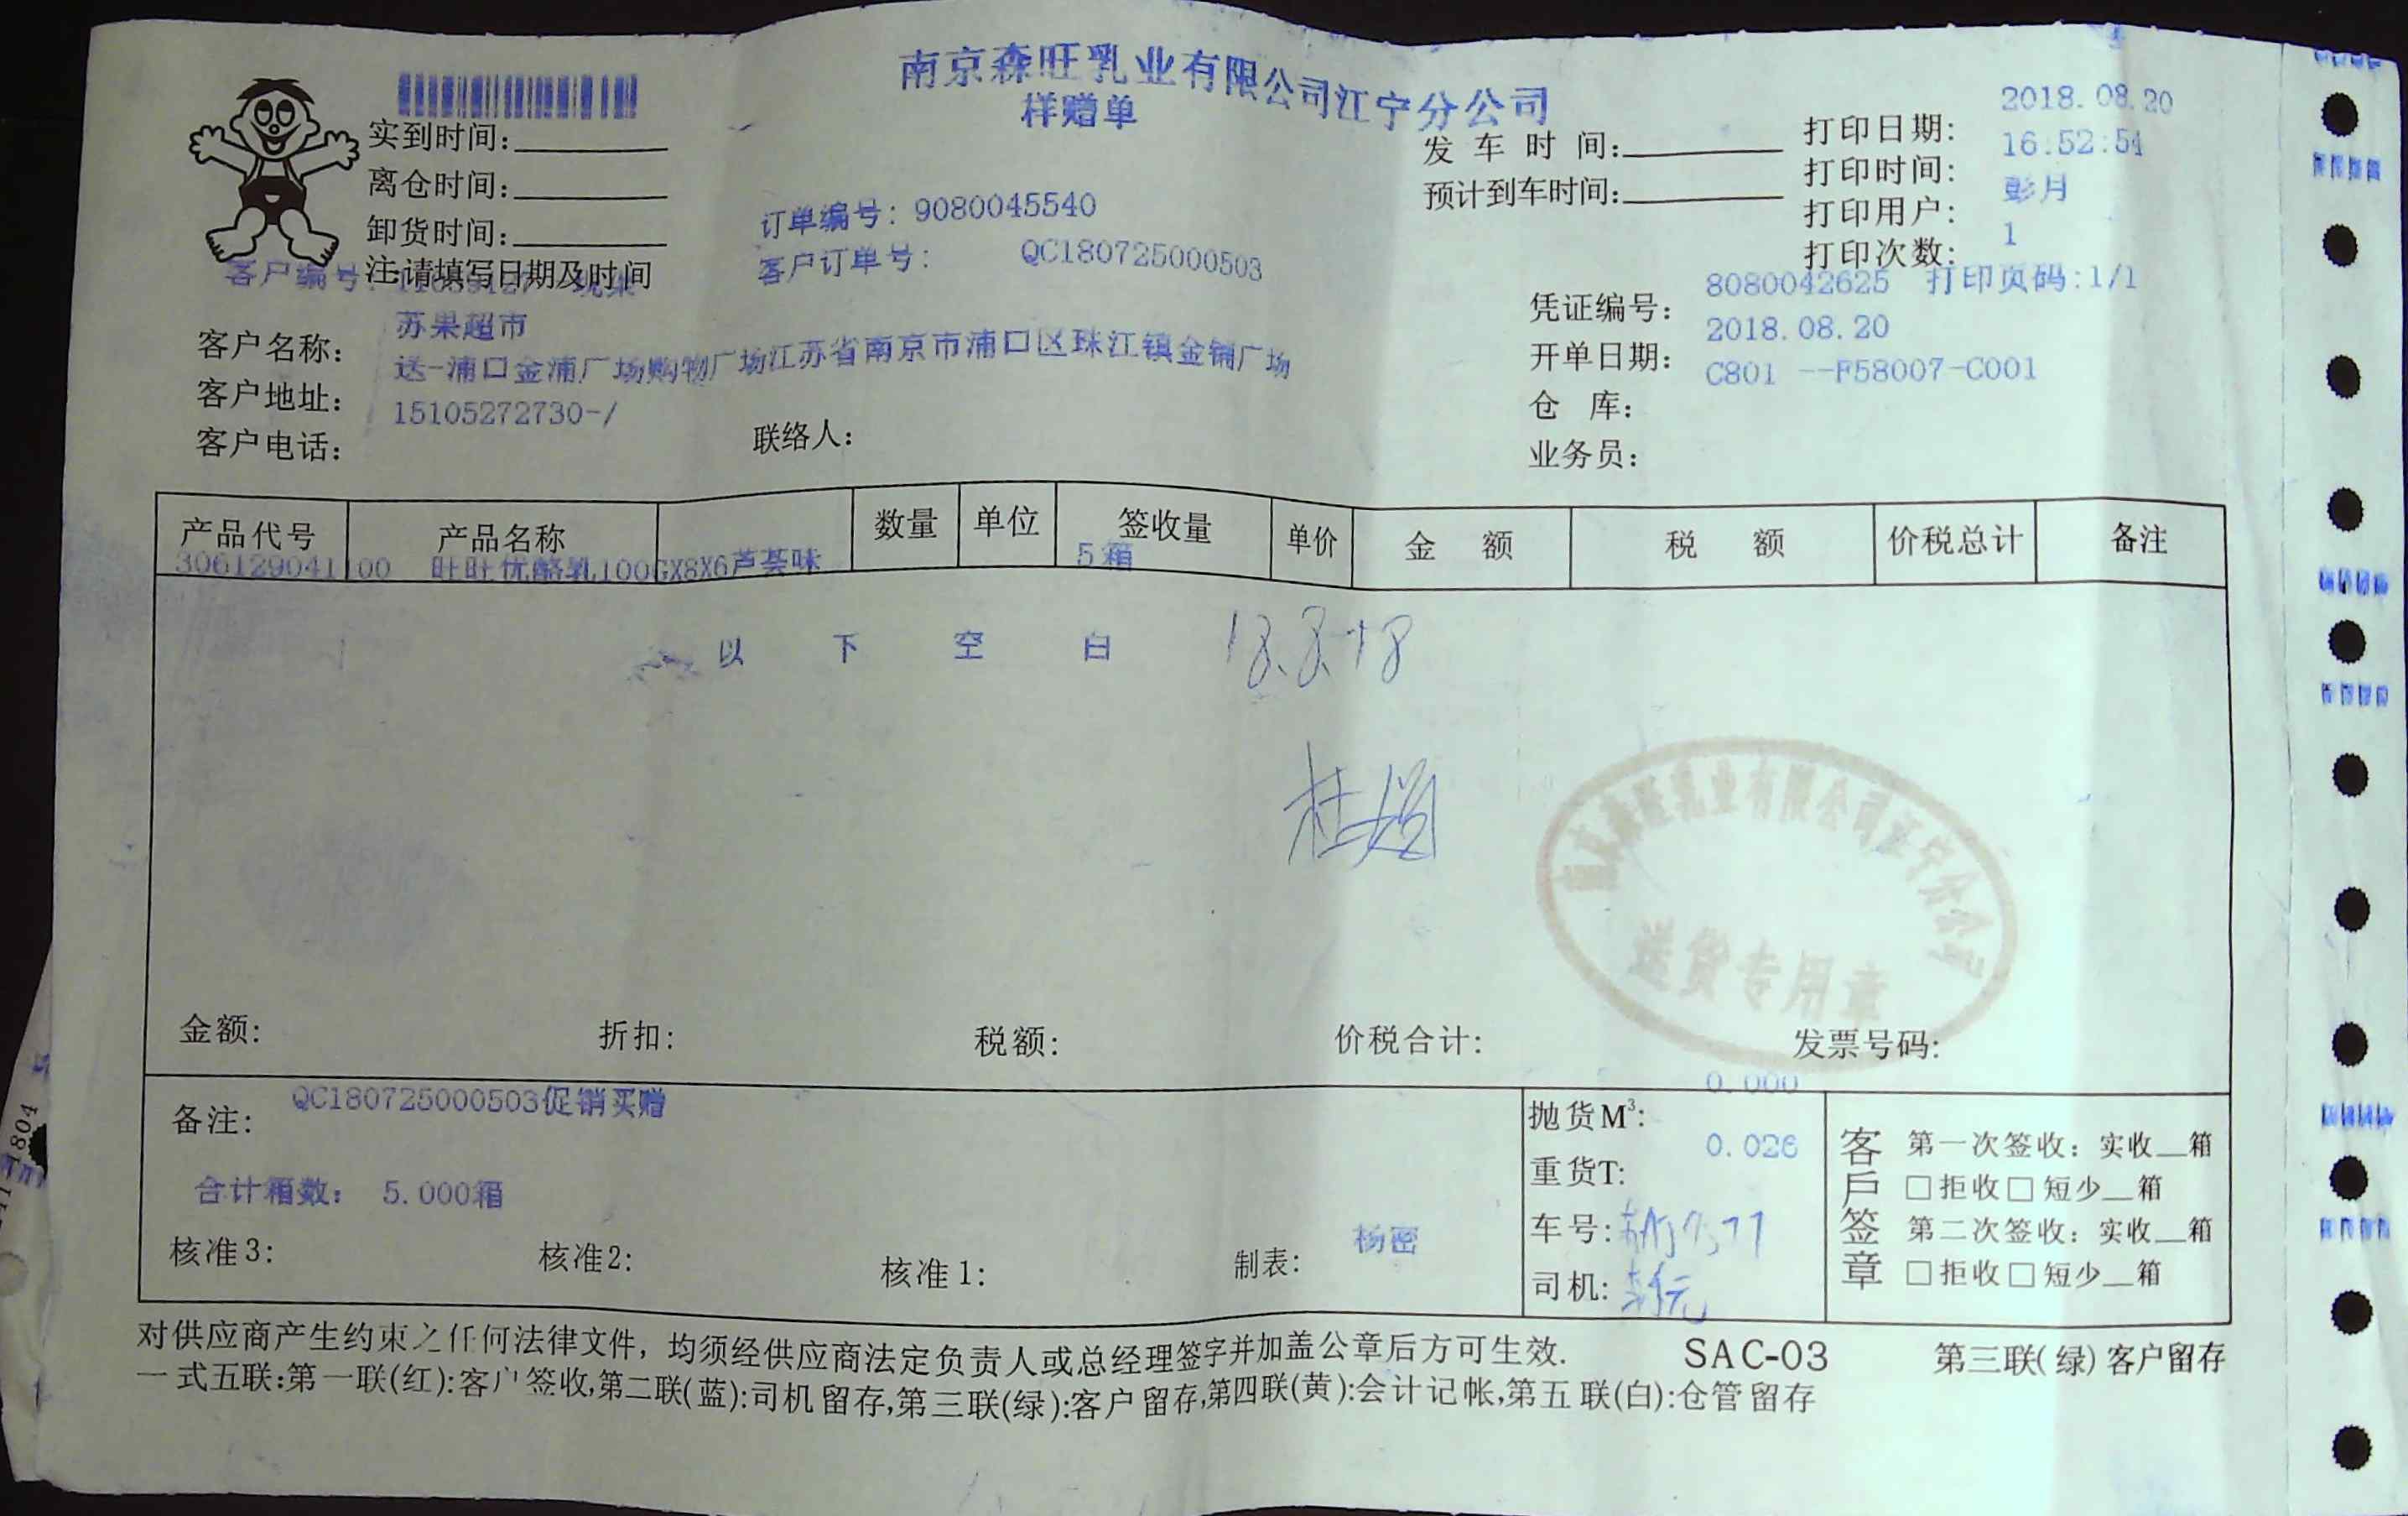 南京森旺乳业有限公司江宁分公司
样赠单
实到时间:
离仓时间:
卸货时间:
注:请填写日期及时间
订单编号: 9080045540
客户订单号: QC180725000503
发车时间:
预计到车时间:
打印日期: 2018.08.20
打印时间: 16:52:54
打印用户: 彭月
打印次数: 1
客户编号:
客户名称: 苏果超市
客户地址: 送-浦口金浦广场购物广场江苏省南京市浦口区珠江镇金铺广场
客户电话: 15105272730-/
联络人:
凭证编号: 8080042625 打印页码:1/1
开单日期: 2018.08.20
仓 库: C801 --F58007-C001
业务员:
产品代号 产品名称 数量 单位 签收量 单价 金 额 税 额 价税总计 备注
306129041100 旺旺优酪乳100GX8X6芦荟味 5箱
以 下 空 白
南京森旺乳业有限公司江宁分公司
送货专用章
金额: 折扣: 税额: 价税合计: 发票号码:
备注: QC180725000503促销买赠
合计箱数: 5.000箱
核准3: 核准2: 核准1: 制表: 杨密
抛货M³: 0.000
重货T: 0.026
车号:
司机:
客戶签章
第一次签收: 实收__箱
□拒收□短少__箱
第二次签收: 实收__箱
□拒收□短少__箱
对供应商产生约束之任何法律文件, 均须经供应商法定负责人或总经理签字并加盖公章后方可生效. SAC-03 第三联(绿)客户留存
一式五联:第一联(红):客户签收,第二联(蓝):司机留存,第三联(绿):客户留存,第四联(黄):会计记帐,第五联(白):仓管留存
1804